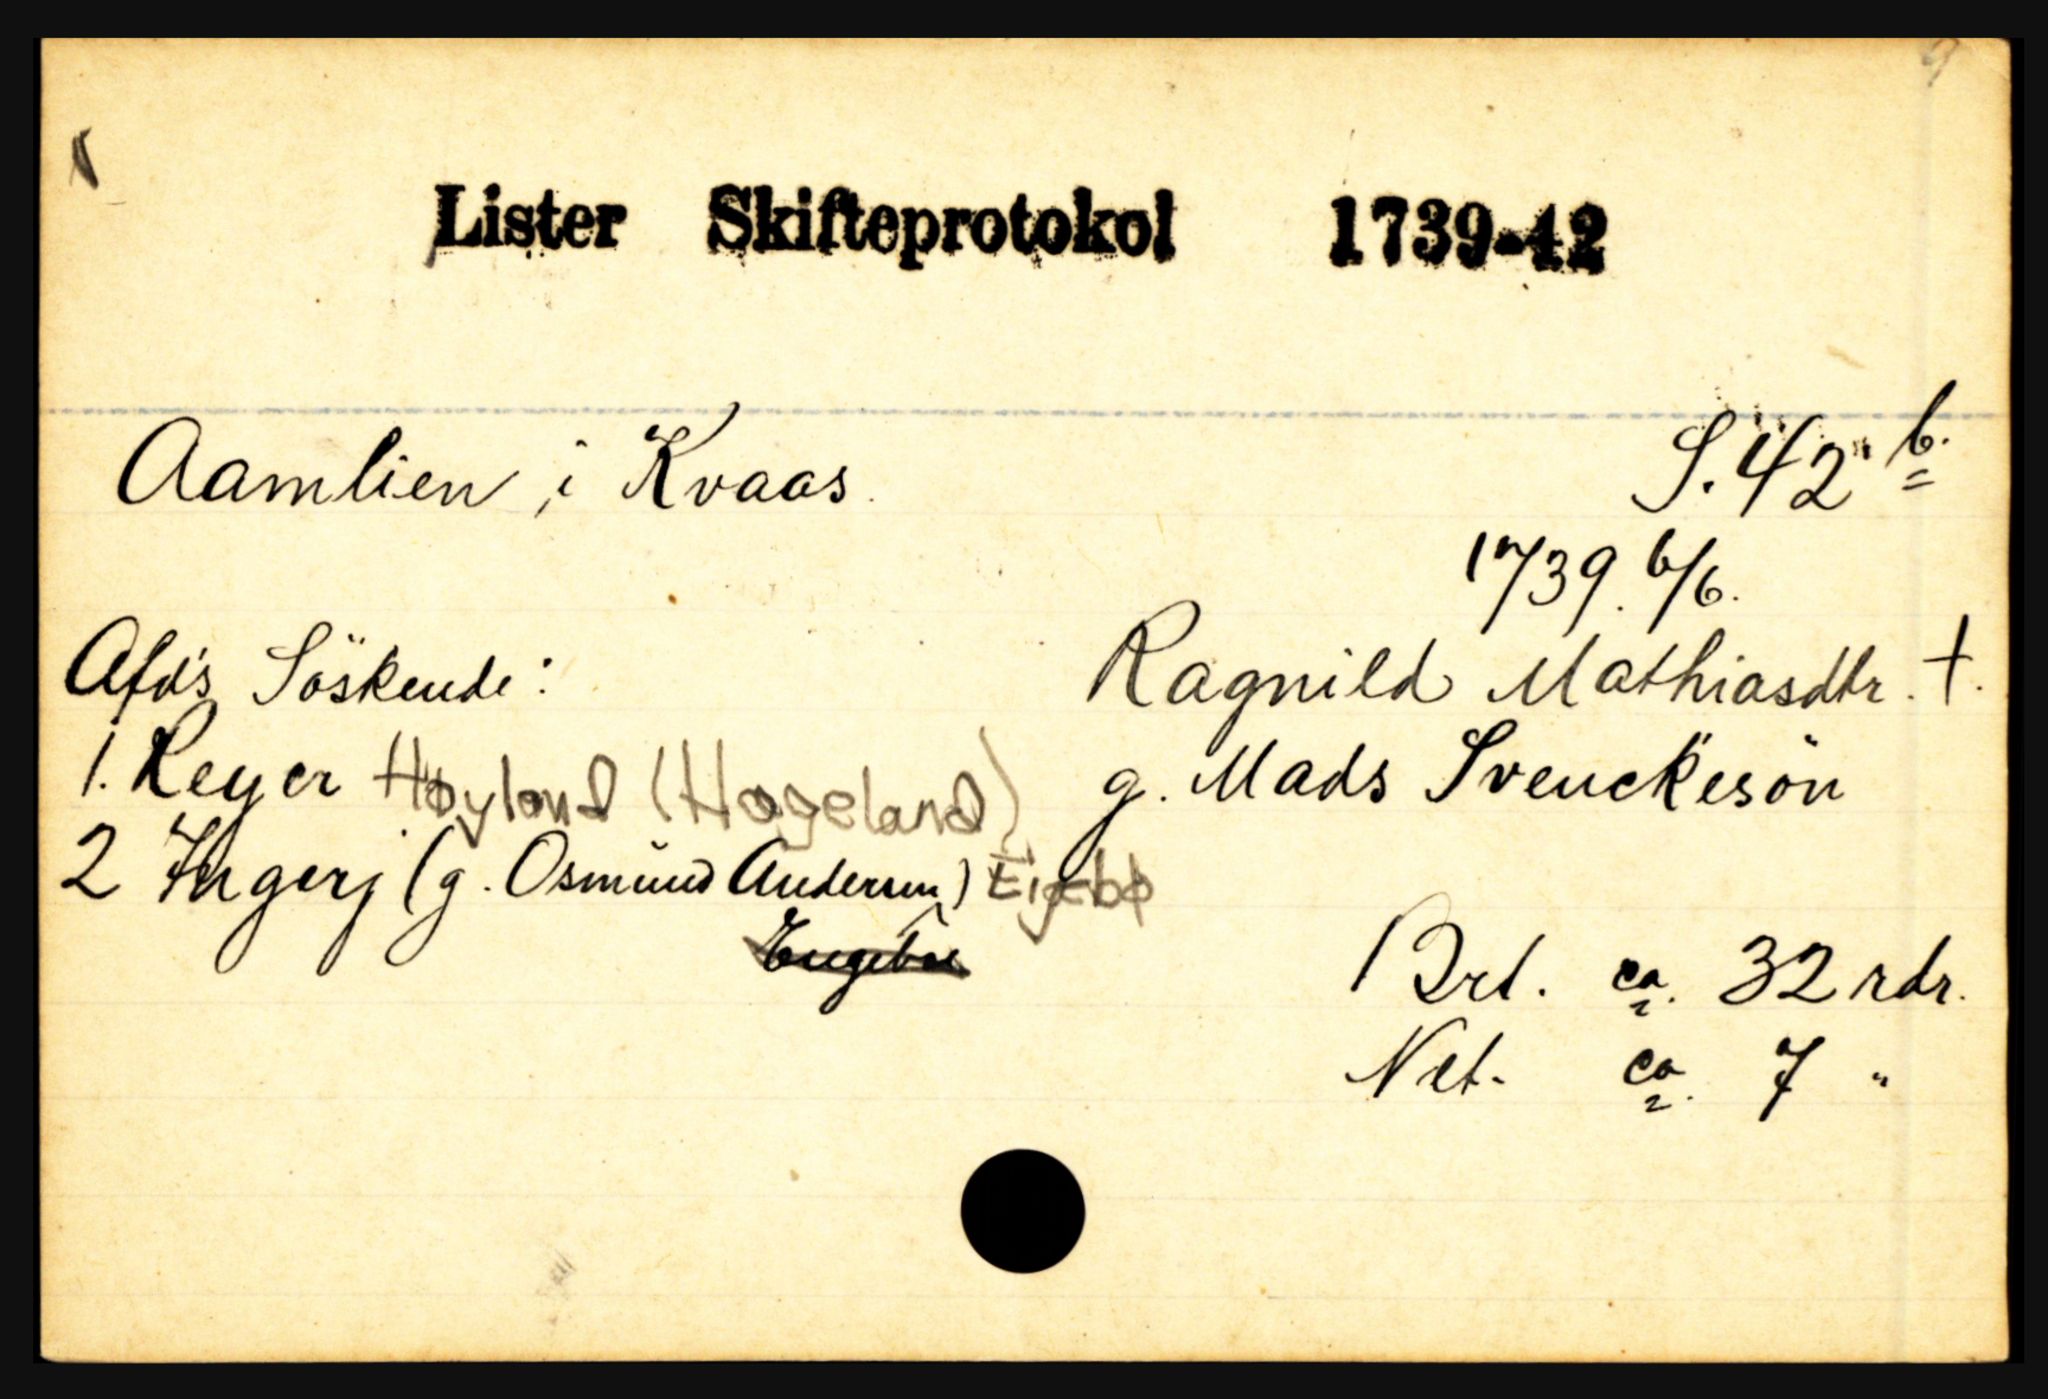 9
Lister Skifteprotokol 1739-42
Aamlien i Kvaas. S. 42 b.
1739. 6/6.
Afd's Söskende: Ragnild Mathiasdtr. †.
1. Reyer Høyland (Hageland) g. Mads Svenckesön
2 Ingerj (g. Osmund Andersen) Eigebø
Engebøe
Brt. ca. 32 rdr.
Net. ca. 7 "